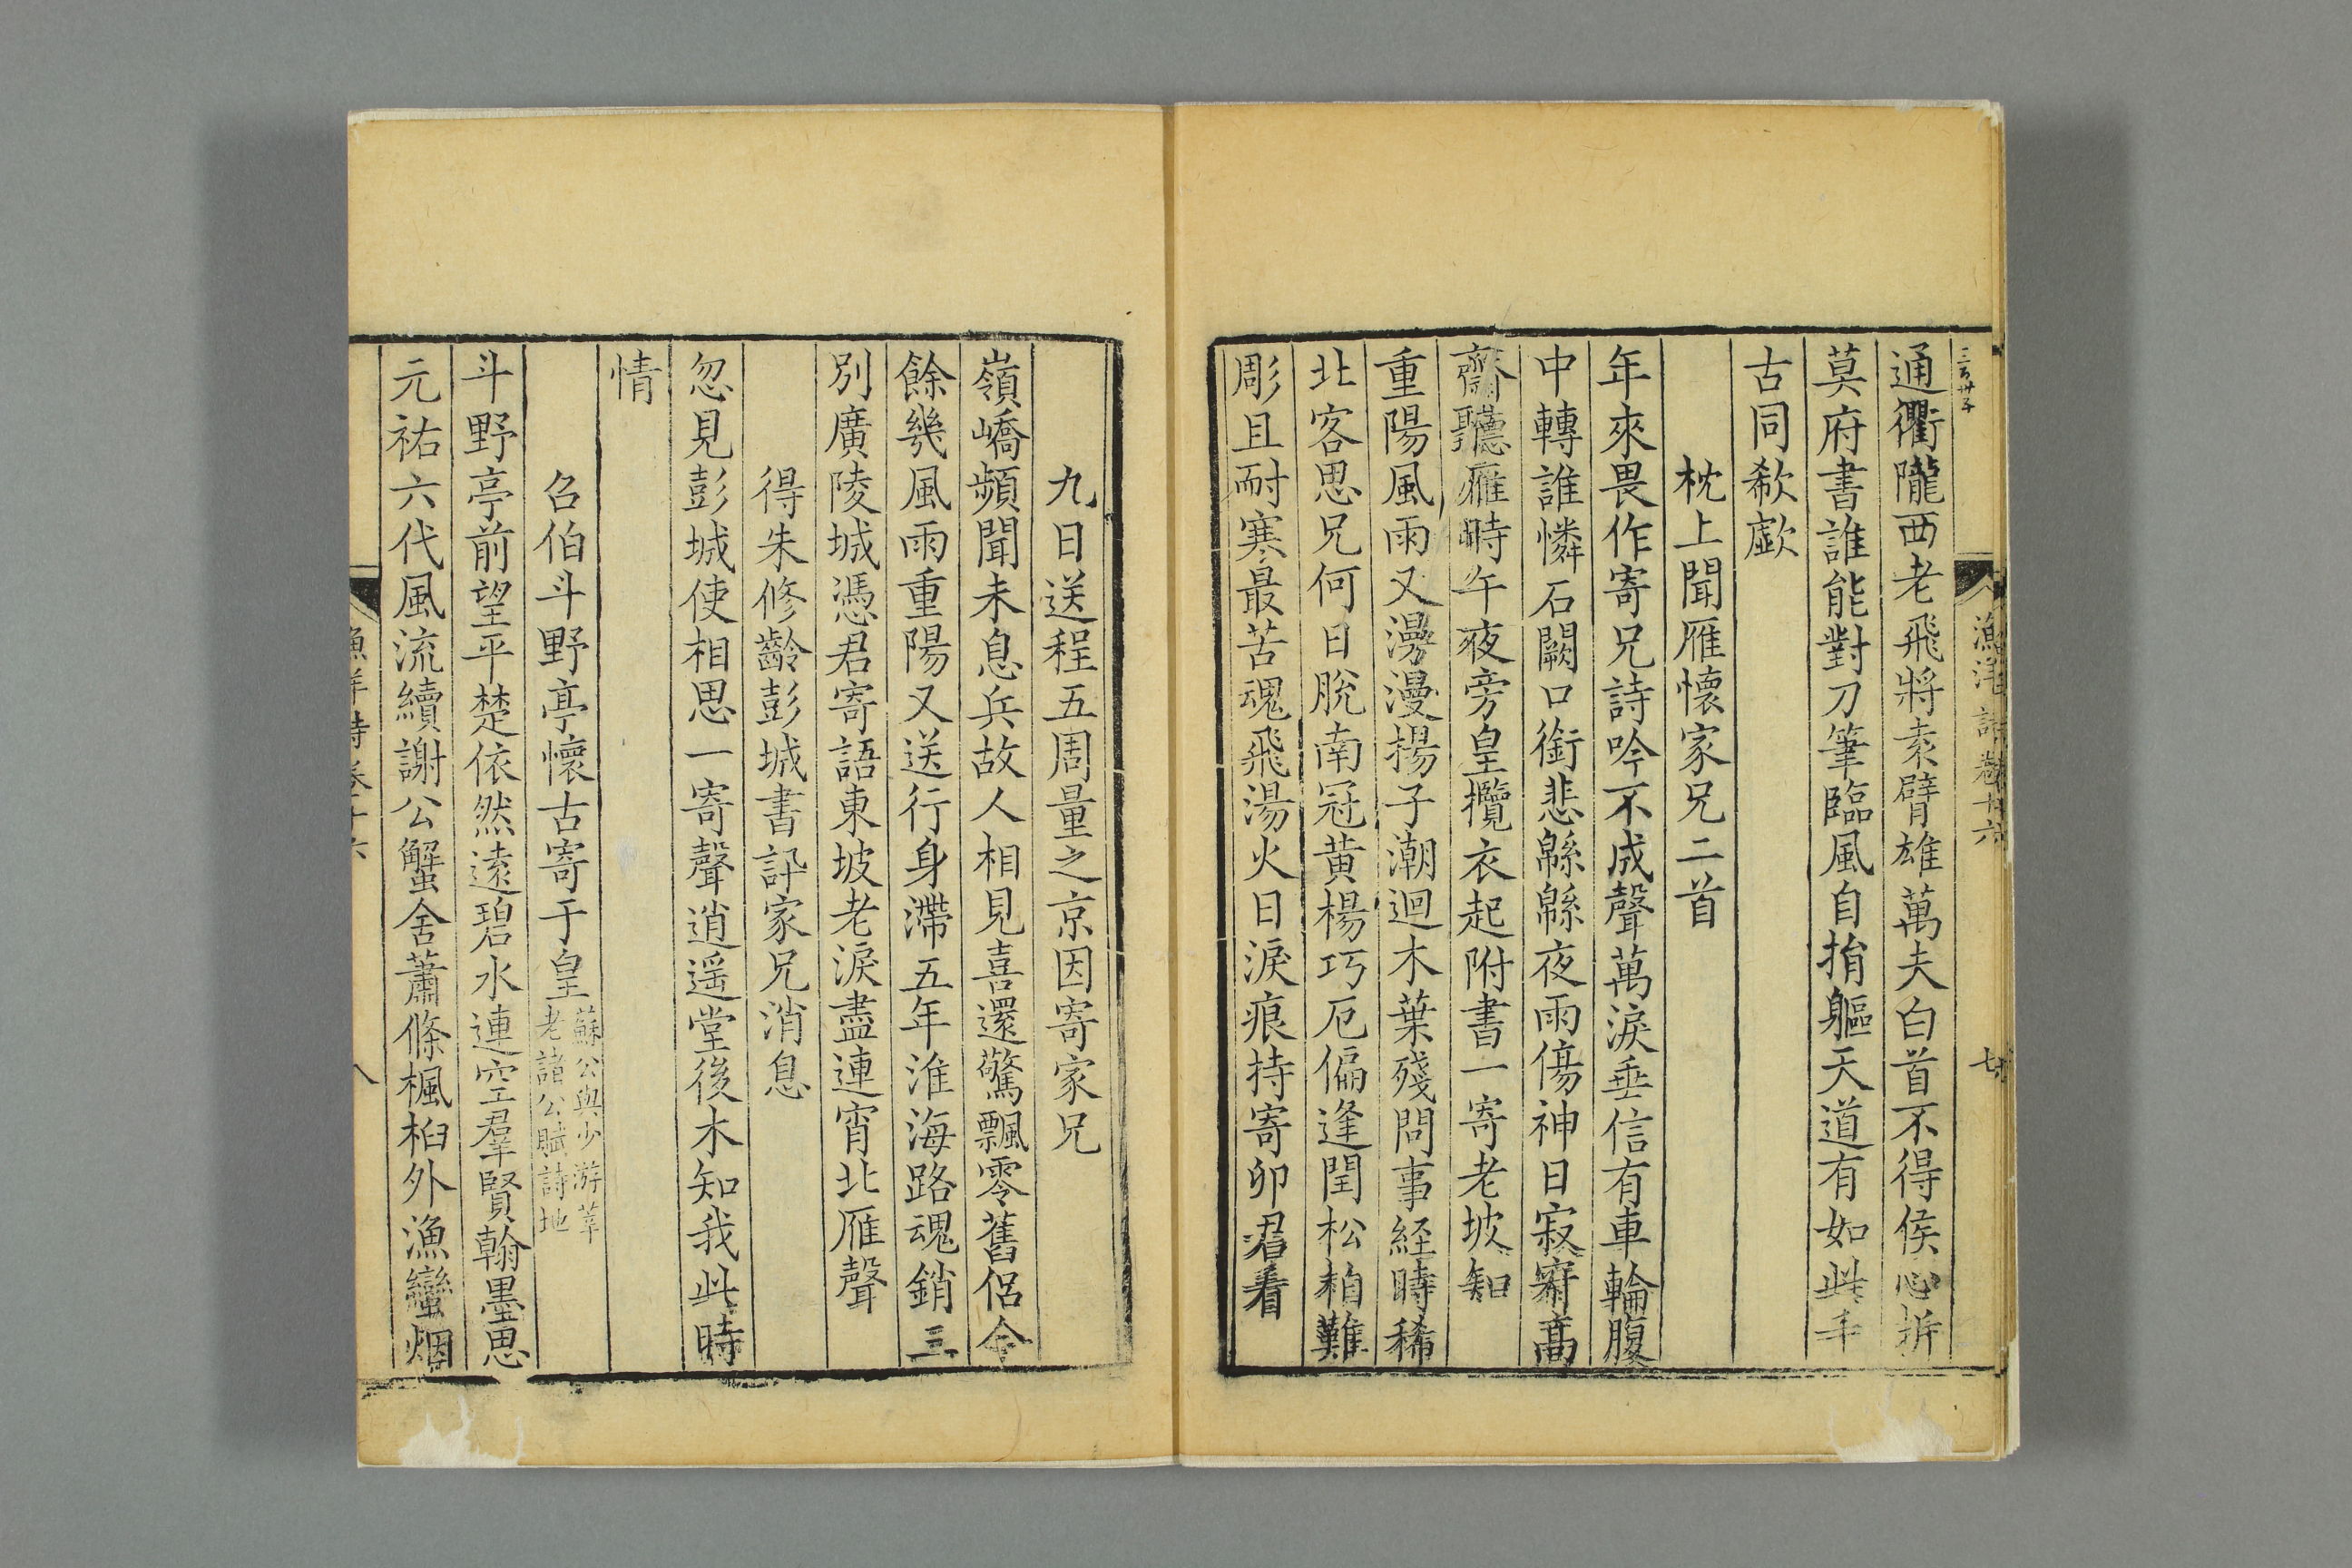 三百卅子
漁洋詩卷十六
七
通衢隴西老飛將袁臂雄萬夫白首不得侯心折
莫府書誰能對刀筆臨風自捐軀天道有如此千
古同欷歔
枕上聞雁懷家兄二首
年來畏作寄兄詩吟不成聲萬淚垂信有車輪腹
中轉誰憐石闕口銜悲緜緜夜雨傷神日寂寂高
齋聽雁時午夜旁皇攬衣起附書一寄老坡知
重陽風雨又漫漫揚子潮迴木葉殘問事経時稀
北客思兄何日脫南冠黃楊巧厄偏逢閏松柏難
彫且耐寒最苦魂飛湯火日淚痕持寄卯君看
九日送程五周量之京因寄家兄
嶺嶠頻聞未息兵故人相見喜還驚飄零舊侶今
餘幾風雨重陽又送行身滯五年淮海路魂銷三
別廣陵城憑君寄語東坡老淚盡連宵北雁聲
得朱修齡彭城書訊家兄消息
忽見彭城使相思一寄聲逍遥堂後木知我此時
情
召伯斗野亭懷古寄于皇蘇公與少游莘
老諸公賦詩地
斗野亭前望平楚依然遠碧水連空羣賢翰墨思
元祐六代風流續謝公蟹舍蕭條楓桕外漁蠻烟
漁洋詩卷十六
八